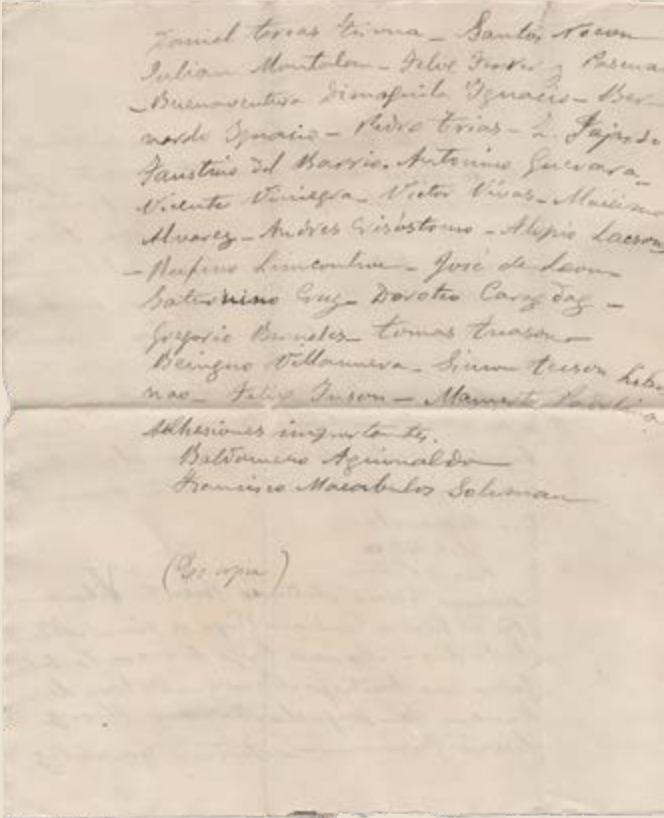 Daniel tirona - Santos Nocon
Julian Montalan - Felix Ferrer y Pascua
- Buenaventura Dimaguila Ygnacio - Ber-
nardo Ygnacio - Pedro trias - L. Fajardo
Faustino del Barrio. Antonino Guevara -
Vicente Viniegra - Victor Vivas - Maximo
Alvarez - Andres Crisóstomo - Alipio Lacson
- Rufino Limcontin - José de Leon -
Saturnino Cruz - Doroteo Caragdag -
Gregorio Bundes - tomas tuason -
Beingno Villanueva - Simon tecson
nao - Felix Tuson - Mamerto
Adhesiones importantes.
Baldomero Aguinaldo
Francisco Macabulos Soliman
(Es copia)